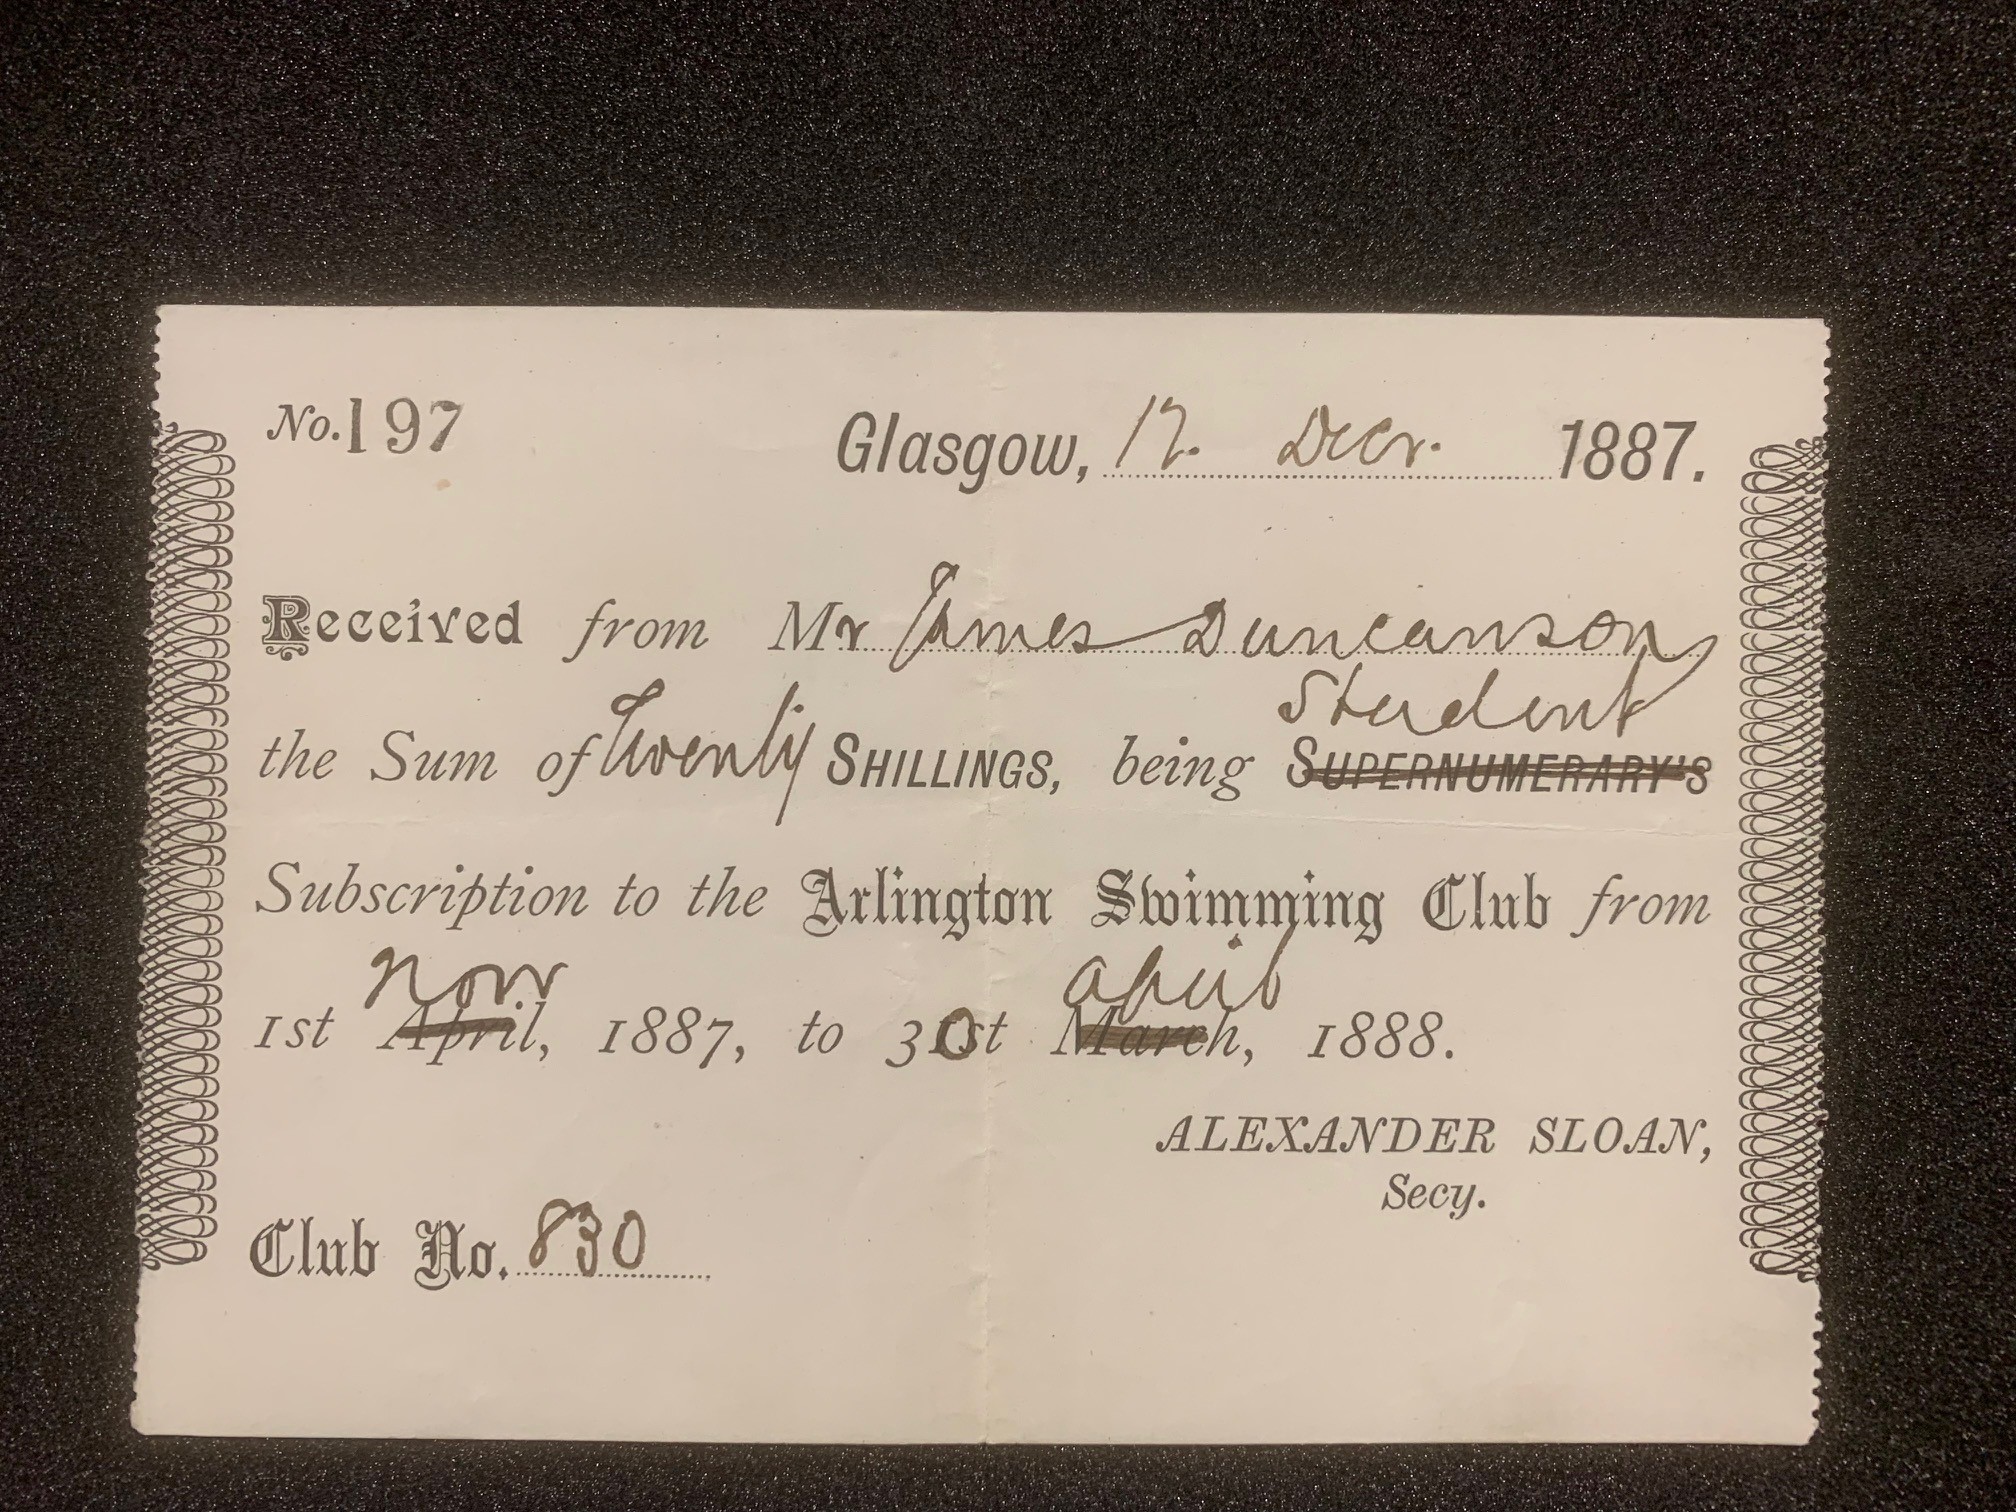 No. 197
Glasgow, 12. Decr. 1887.
Received from Mr James Duncanson
Student
the Sum of Twenty SHILLINGS, being SUPERNUMERARY'S
Subscription to the Arlington Swimming Club from
Novr april
1st April, 1887, to 30st March, 1888.
ALEXANDER SLOAN,
Secy.
Club No. 830